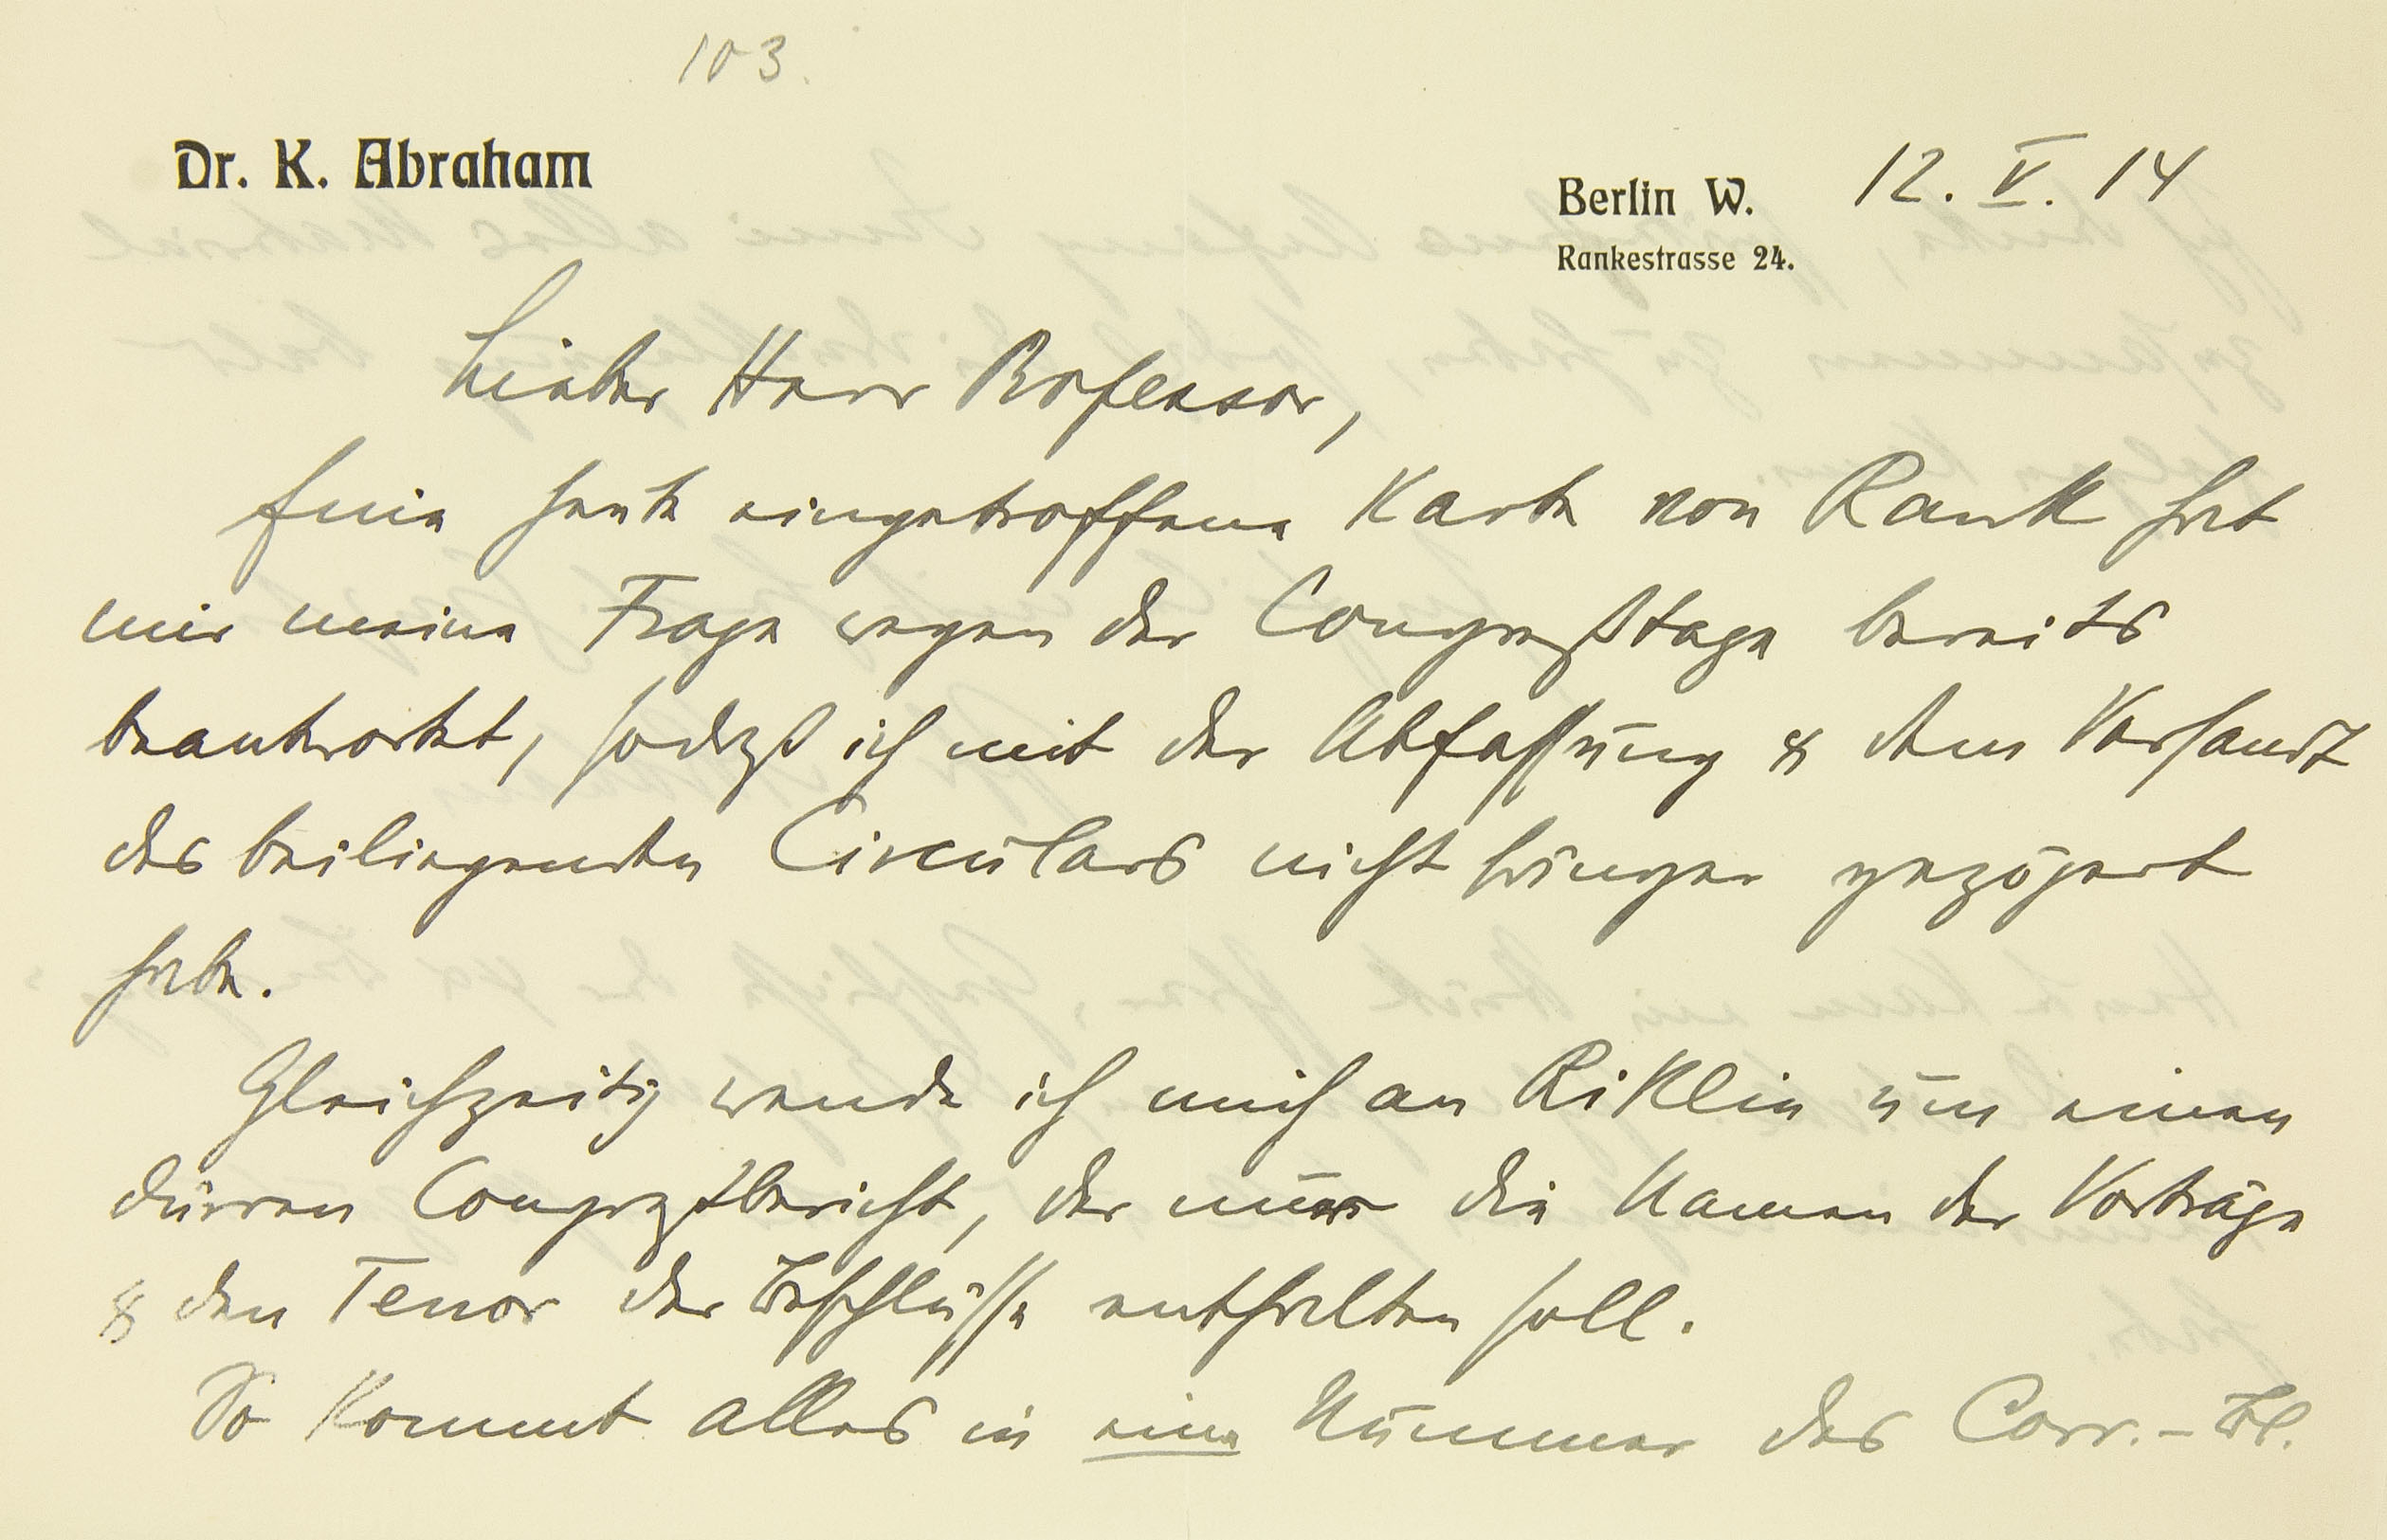 103.
Dr. K. Abraham
Berlin W. 12. V. 14
Rankestrasse 24.
Lieber Herr Professor,
Eine heute eingetroffene Karte von Rank hat
mir meine Frage wegen der Congreßtage bereits
beantwortet, sodaß ich mit der Abfassung & dem Versandt
des beiliegenden Circulars nicht länger gezögert
habe.
Gleichzeitig wende ich mich an Riklin um einen
dürren Congreßbericht, der nur die Namen der Vorträge
& den Tenor der Beschlüsse enthalten soll.
So kommt alles in eine Nummer des Corr.-Bl.